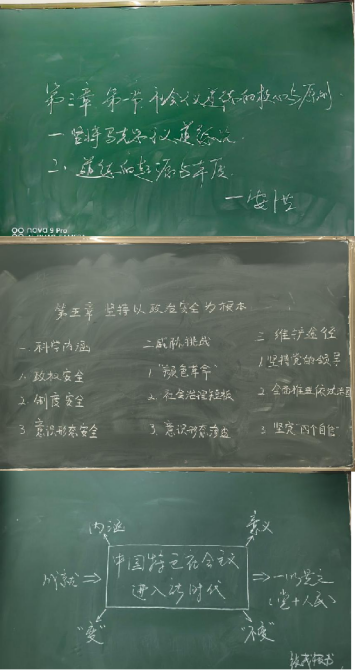 第三章 第一节 社会主义道德的核心与原则
一 坚持马克思主义道德观
二、道德的起源与本质
nova 9 Pro
第五章 坚持以政治安全为根本
一 科学内涵
二 威胁挑战
三 维护途径
1. 政权安全
1 "颜色革命"
1 坚持党的领导
2. 制度安全
2. 社会治理短板
2 全面推进依法治国
3. 意识形态安全
3. 意识形态渗透
3 坚定"四个自信"
内涵
意义
成就⇒
中国特色社会主义
进入新时代
⇒一以贯之
(党+人民)
"变"
"不变"